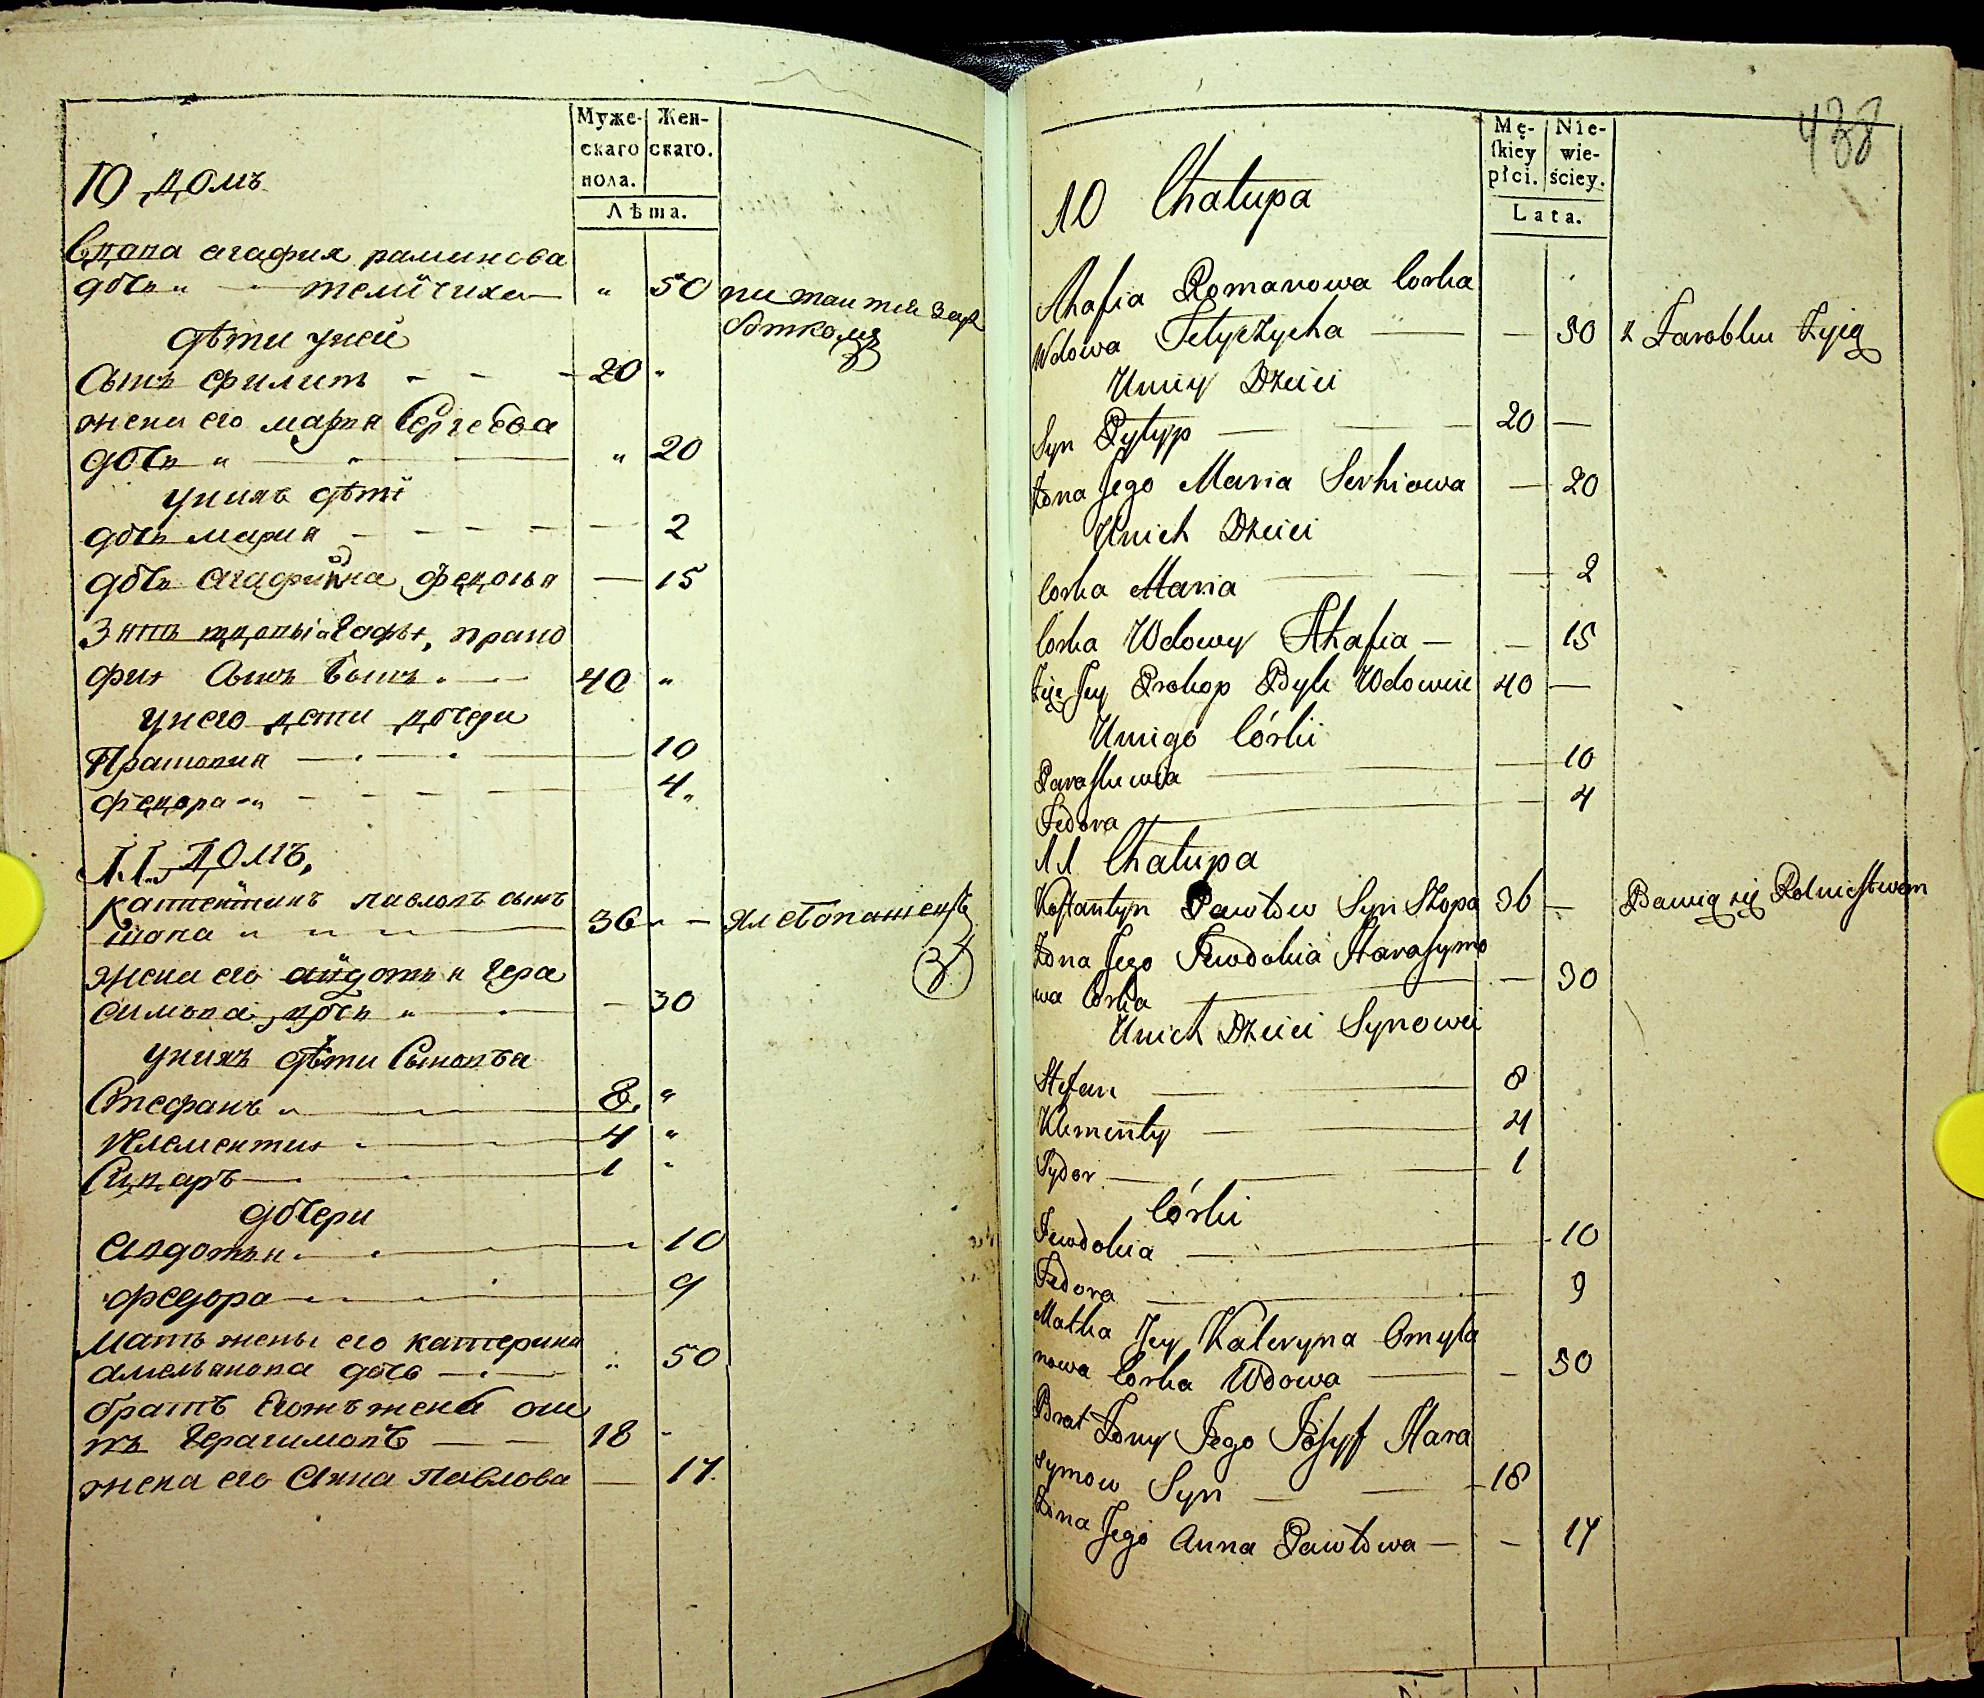 Муже-
скаго
пола.
Жен-
скаго.
Лѣта.
10 домъ
Вдова агафия раминова
дочь " — 50
питаитси зара
боткомъ
дѣти унеи
Сынъ филипъ - - - 20 "
жена его марья Сергеева
дочь " — " 20
унихъ дѣти
дочь мария - - - - — 2
дочь — 15
40 "
унего дети дочери
Прасковия — 10
федора - - - - 4
11. домъ,
павловъ сынъ
шопа " " " — 36 " —
жена его авдотья Гера
симова дочь " — 30
унихъ дѣти Сыновья
Стефанъ — 8. "
Клементий — 4 "
Сидаръ — 1 "
дочери
Авдотья — 10
федора — 9
Мать жены его катерина
амельянова дочь — " 50
братъ Егожъ жены оси
пъ Герасимовъ — — 18 -
жена его Анна Павлова — 17.
438
Mę-
skiey
płci.
Nie-
wie-
ściey.
Lata.
10 Chałupa
Ahafia Romanowa Corka
Wdowa — — 50 z Zarobku Zyią
Uniey Dzieci
Syn Pylyp — — — 20 —
Zona Jego Maria Serhiowa — 20
Unich Dzieci
Corka Maria — — — 2
Corka Wdowy Ahafia — — 15
Zięć Jey Prokop Byk Wdowiec 40 —
Uniego Córki
Paraskiewia — — 10
Fedora — — 4
11 Chałupa
Kostantyn Pawłow Syn Szopa 36 — Bawią się Rolnictwem
Zona Jego Jewdokia Harasymo
wa Corka — — 30
Unich Dzieci Synowie
Stefan — 8
Klementy — 4
Sydor — — 1
Córki
Jewdokia — 10
Fedora — 9
Matka Jey Kateryna Omyla
nowa Corka Wdowa — — 50
Brat Zony Jego Josyf Hara
symow Syn — — 18
Zona Jego Anna Pawłowa — — 17